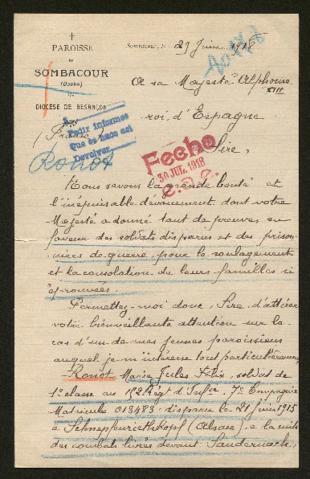 PAROISSE
DE
SOMBACOUR
(Doubs)
DIOCÈSE DE BESANÇON
Sombacour, le 29 Juin
A sa Majesté Alphonse
XIII
roi d'Espagne
Pedir informes
que se hace así
Devolver
Ronot
Fecho
30 JUL. 1918
Sire,
Nous savons la grande bonté et
l'inépuisable dévouement dont votre
Majesté a donné tant de preuves en
faveur des soldats disparus et des prison-
niers de guerre, pour le soulagement
et la consolation de leurs familles si
éprouvées.
Permettez-moi donc, Sire, d'attirer
votre bienveillante attention sur le
cas d'un de mes jeunes paroissiens
auquel je m'intéresse tout particulièrement
Ronot Marie Jules Félix, soldat de
1e classe au Régt d'Infie. 7e Compagnie
Matricule 013483, disparu le 21 juin 1915
à Schnepfenriethkopf (Alsace), à la suite
des combats livrés devant Sondernach.